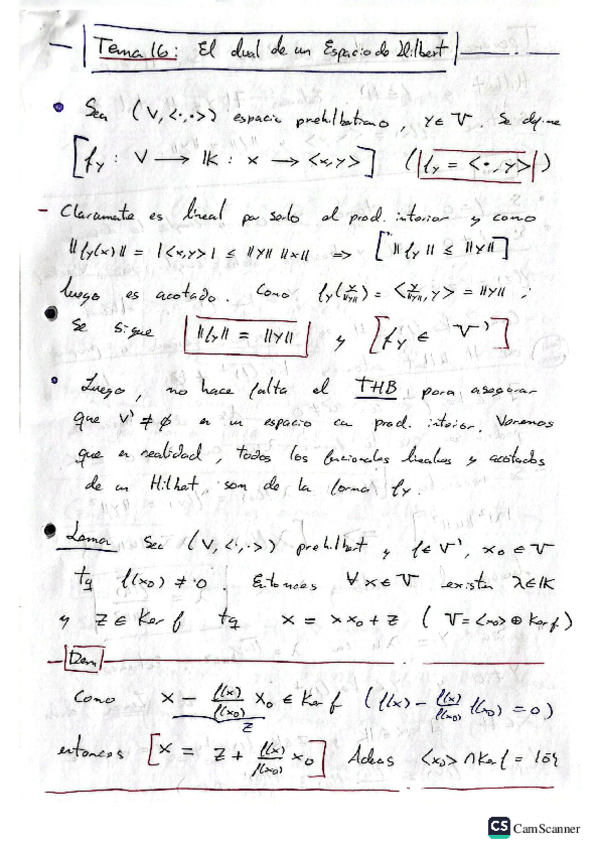 Tema 16: El dual de un Espacio de Hilbert
Sea (V, <·,·>) espacio prehilbertiano, y∈V. Se define
[f_y : V → IK : x → <x,y>] (|f_y = <·,y>|)
- Claramente es lineal por serlo el prod. interior y como
||f_y(x)|| = |<x,y>| ≤ ||y|| ||x|| => [||f_y|| ≤ ||y||]
luego es acotado. Como f_y(y/||y||) = <y/||y||, y> = ||y|| ;
Se sigue ||f_y|| = ||y|| y [f_y ∈ V']
Luego, no hace falta el THB para asegurar
que V' ≠ ∅ en un espacio con prod. interior. Veremos
que en realidad, todos los funcionales lineales y acotados
de un Hilbert, son de la forma f_y.
Lema Sea (V, <·,·>) prehilbert y f∈V', x₀∈V
tq f(x₀) ≠ 0. Entonces ∀x∈V existen λ∈IK
y z ∈ Ker f tq x = λx₀ + z ( V = <x₀> ⊕ Ker f )
Dem
Como x - f(x)/f(x₀) x₀ ∈ Ker f ( f(x) - f(x)/f(x₀) f(x₀) = 0 )
z
entonces [x = z + f(x)/f(x₀) x₀] Además <x₀> ∩ Ker f = {0}
CS CamScanner